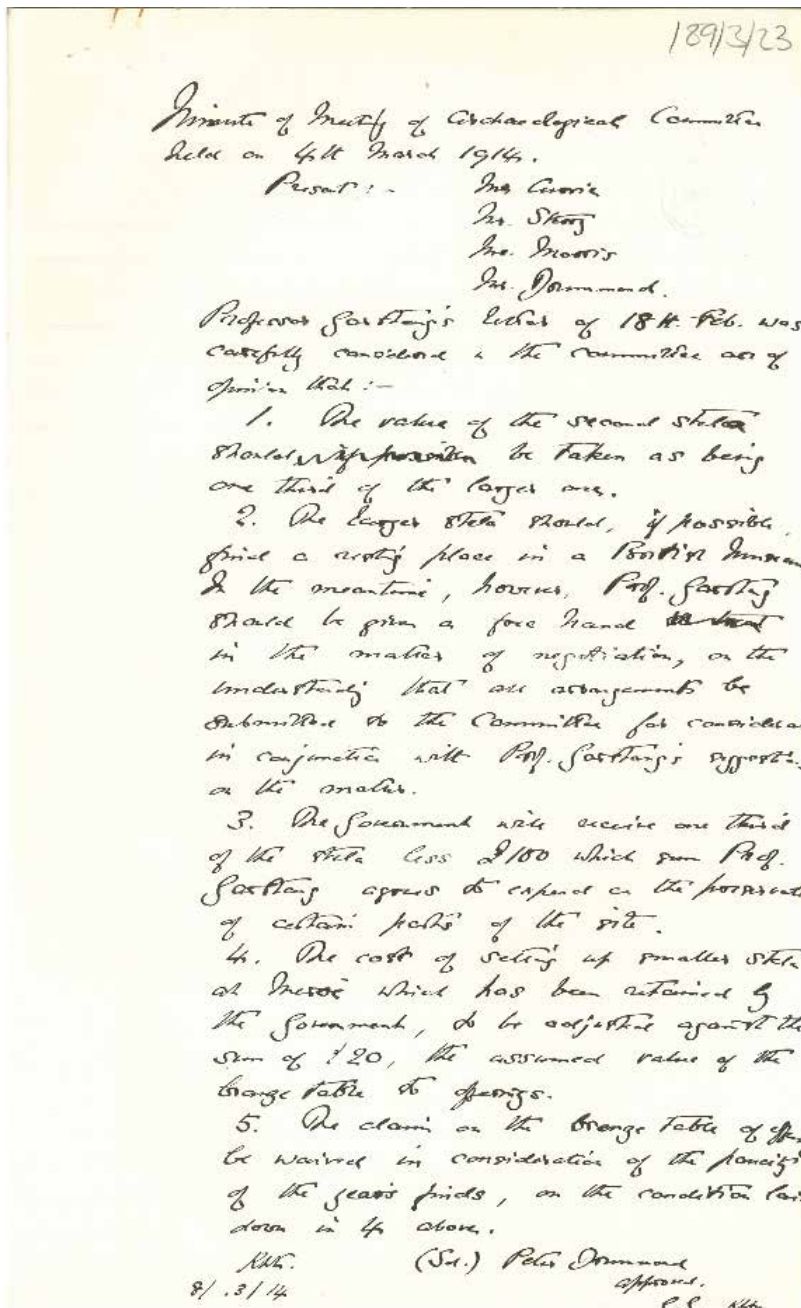 189/3/23
Minute of Meeting of Archaeological Committee
held on 4th March 1914.
Present :- Mr Currie
Mr. Sterry
Mr. Morris
Mr. Drummond.
Professor Garstang's letter of 18th. Feb. was
carefully considered & the committee are of
opinion that :-
1. The value of the second stela
should be taken as being
one third of the larger one.
2. The larger stela should, if possible,
find a resting place in a British Museum
In the meantime, however, Prof. Garstang
should be given a free hand
in the matter of negotiation, on the
understanding that all arrangements be
submitted to the Committee for considera
in conjunction with Prof. Garstang's suggestions
on the matter.
3. The Government will receive one third
of the stela less £100 which sum Prof.
Garstang agrees to expend on the preservat
of certain parts of the site.
4. The cost of setting up smaller stela
at Meroë which has been retained by
the Government, to be adjusted against the
sum of £20, the assumed value of the
bronze table of offerings.
5. The claim on the bronze table of offer
be waived in consideration of the paucity
of the year's finds, on the condition lai
down in 4 above.
Khtm. (Sd.) Peter Drummond
8/.3/14 approved.